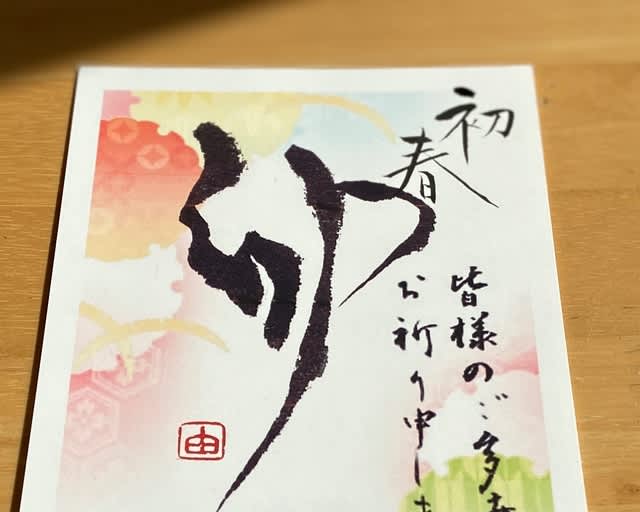 初春
卯
皆様のご多幸
お祈り申しま
由